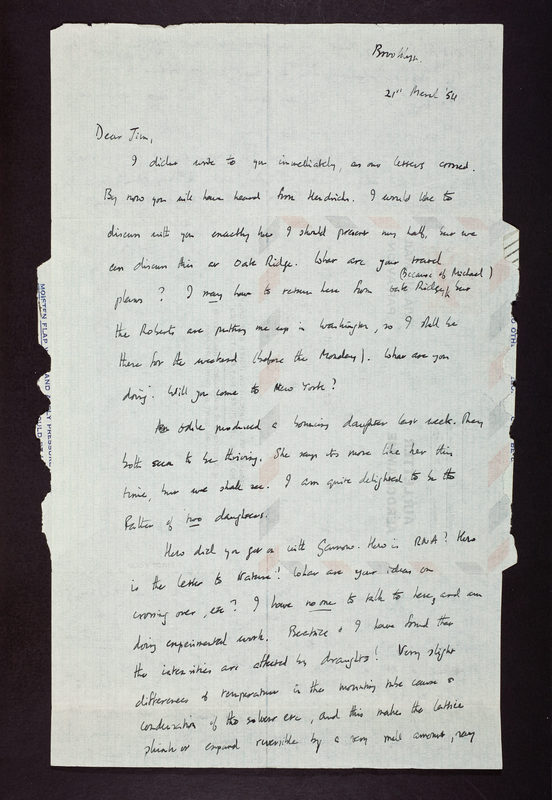 Brooklyn.
21st March '54
Dear Jim,
I didn't write to you immediately, as our letters crossed.
By now you will have heard from Hendricks. I would like to
discuss with you exactly how I should present my half, but we
can discuss this at Oak Ridge. What are your travel
(Because of Michael)
plans? I may have to return here from Oak Ridge, but
the Roberts are putting me up in Washington, so I shall be
there for the weekend (before the Monday). What are you
doing? Will you come to New York?
Odile produced a bouncing daughter last week. They
both seem to be thriving. She says its more like her this
time, but we shall see. I am quite delighted to be the
Father of two daughters.
How did you get on with Gamow. How is RNA? How
is the letter to Nature? What are your ideas on
crossing over, etc? I have no one to talk to here, and am
doing experimental work. Beatrice & I have found that
the intensities are affected by draughts! Very slight
differences of temperature in the mounting tube cause
condensation of the solvent etc, and this makes the lattice
shrink or expand reversibly by a very small amount, very
MOISTEN FLAP
AND
PRESSURE